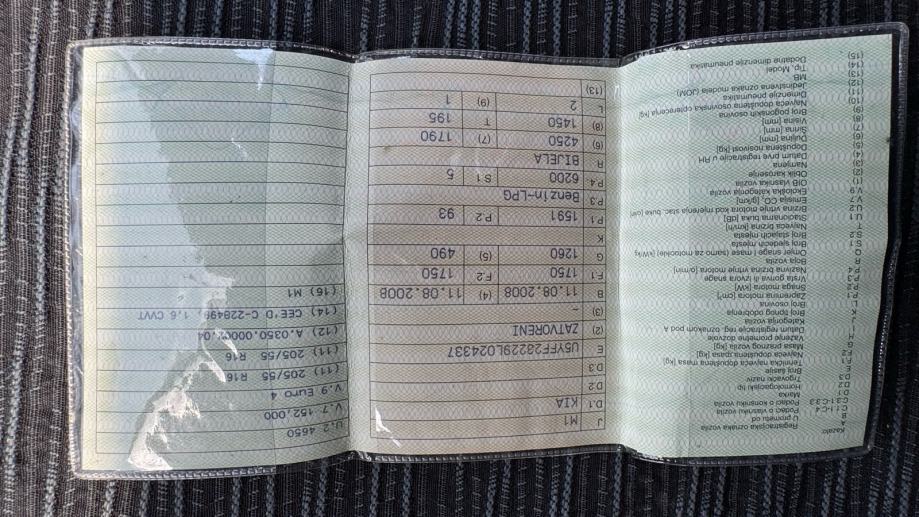 Kazalo:
A Registracijska oznaka vozila
B U prometu od
C.1.1-C.4 Podaci o vlasniku vozila
C.3.1-C.3.3 Podaci o korisniku vozila
D.1 Marka
D.2 Homologacijski tip
D.3 Trgovački naziv
E Broj šasije
F.1 Tehnička najveća dopuštena masa [kg]
F.2 Najveća dopuštena masa [kg]
G Masa praznog vozila [kg]
I Datum registracije
J Kategorija vozila
K Broj tipnog odobrenja
L Broj osovina
P.1 Zapremina motora [cm³]
P.2 Snaga motora [kW]
P.3 Vrsta goriva ili izvora snage
P.4 Nazivna brzina vrtnje motora [o/min]
R Boja vozila
Q Omjer snage i mase (samo za motocikle) [kW/kg]
S.1 Broj sjedećih mjesta
S.2 Broj stajaćih mjesta
T Najveća brzina [km/h]
U.1 Stacionarna buka [dB]
U.2 Brzina vrtnje motora kod mjerenja stac. buke
V.7 Emisija CO₂ [g/km]
V.9 Ekološka kategorija vozila
(1) OIB vlasnika vozila
(2) Oblik karoserije
(3) Namjena
(4) Datum prve registracije u RH
(5) Dopuštena nosivost [kg]
(6) Duljina [mm]
(7) Širina [mm]
(8) Visina [mm]
(9) Broj pogonskih osovina
(10) Najveća dopuštena osovinska opterećenja [kg]
(11) Dimenzije pneumatika
(12) Jedinstvena oznaka modela (JOM)
(13) MB
(14) Tip, Model
(15) Dodatne dimenzije pneumatika
J M1
D.1 KIA
D.2
D.3
E U5YFF23229L024337
(2) ZATVORENI
(3) -
B 11.08.2008 (4) 11.08.2008
F.1 1750 F.2 1750
G 1260 (5) 490
K
P.1 1591 P.2 93
P.3 Benzin-LPG
P.4 6200 S.1 5
R BIJELA
(6) 4250 (7) 1790
(8) 1450 T 195
L 2 (9) 1
(13)
U.2 4650
V.7 152,000
V.9 Euro 4
(11) 205/55 R16
(11) 205/55 R16
(12) A.0350.0000.04
(14) CEE'D 1,6 CVVT
(16) M1